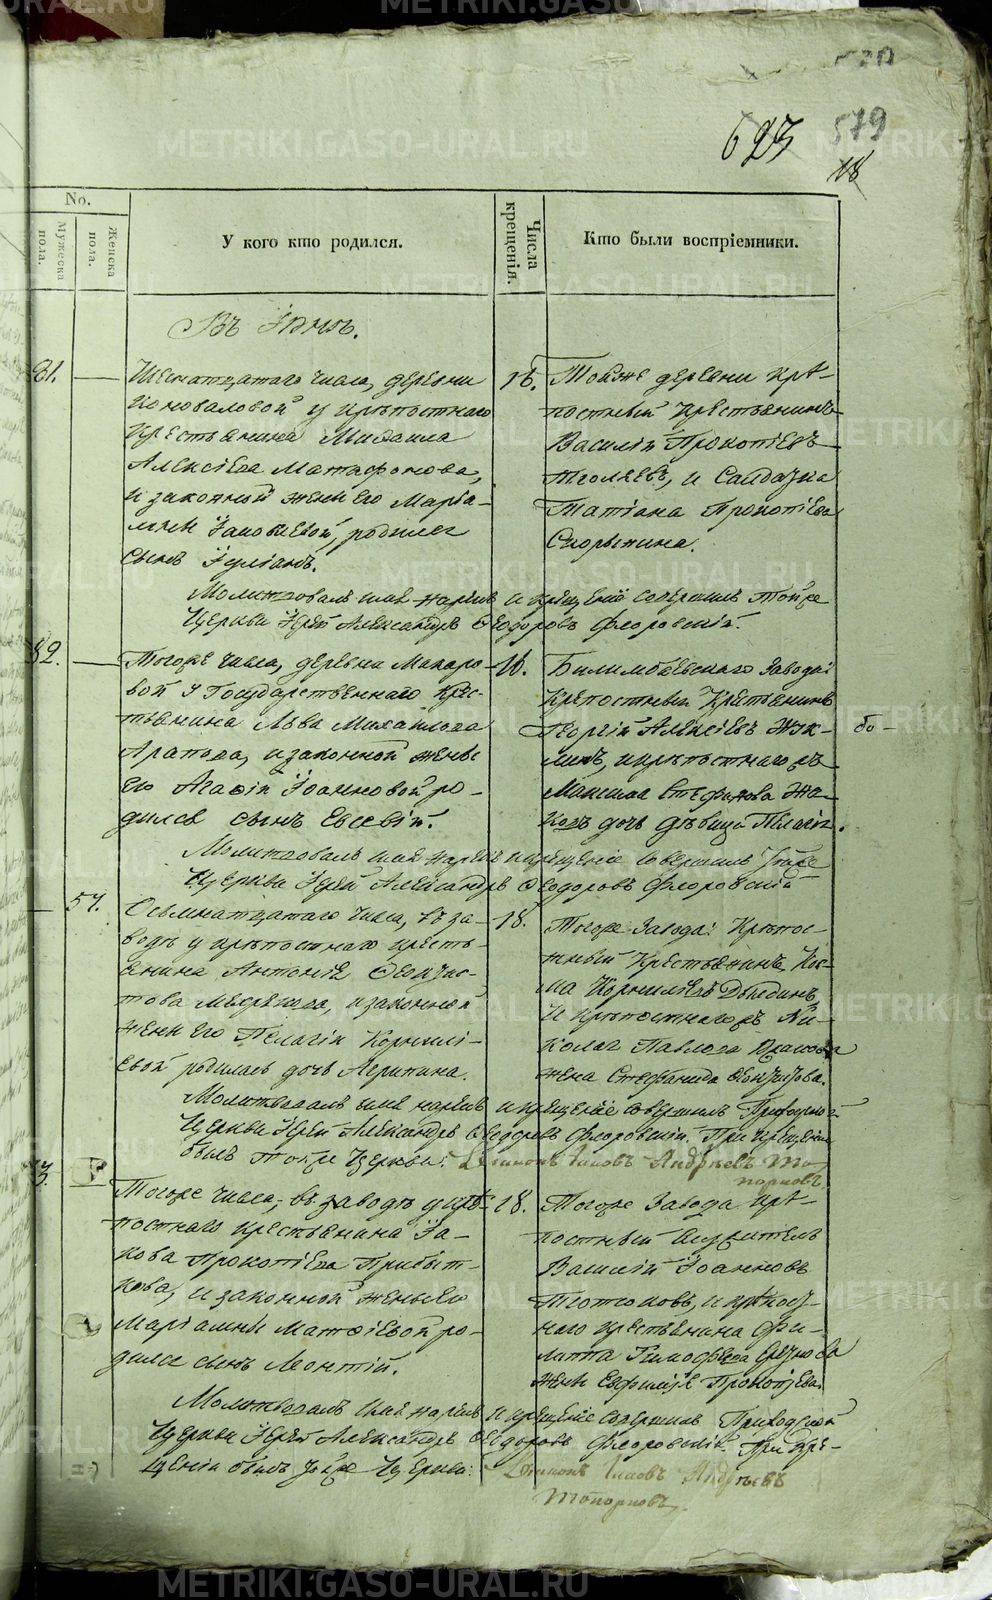 579
623
579
18
No.
Мужеска пола.
Женска пола.
У кого кто родился.
Числа крещенія.
Кто были воспріемники.
Въ Іюнѣ.
81.
Шеснатцатаго числа, деревни
Коноваловой у крѣпостнаго
крестьянина Михаила
Алексіева Матафонова,
и законной жены его Маріа-
мны Іаковлевой, родился
сынъ Іуліанъ.
16.
Тоя же деревни крѣ-
постный крестьянинъ
Василій Прокопіевъ
и Солдатка
Татіана Прокопіева
Скорынина.
Молитвовалъ имя нарекъ и крещеніе совершилъ тойже
Церкви Іерей Александръ Ѳеодоровъ Флоровскій.
82.
Тогоже числа, деревни Макаро-
вой у Государственнаго крес-
тьянина Льва Михайлова
Арапова, и законной жены
его Агафіи Іоанновой ро-
дился сынъ Евсевій.
16.
Билимбаевскаго Завода:
Крепостный Крестьянинъ
Георгій Алексіевъ
и крѣпостнаго
Максима Стефанова
дочь дѣвица Пелагія.
Молитвовалъ имя нарекъ и крещеніе совершилъ тойже
Церкви Іерей Александръ Ѳеодоровъ Флоровскій
57.
Осьмнатцатаго числа, въ за-
водѣ у крѣпостнаго кресть-
янина Антонія Ѳеоктис-
това и законной
жены его Пелагіи Корнилі-
евой родилась дочь Агрипина.
18.
Тогоже Завода: Крѣпос-
тный Крестьянинъ Кос-
ма Корниліевъ
и крѣпостнаго Ни-
колая Павлова
жена Стефанида
Молитвовалъ имя нарекъ и крещеніе совершилъ Приходской
Церкви Іерей Александръ Ѳеодоровъ Флоровскій. При крещеніи
былъ тойже Церкви: Андреевъ То-
порковъ.
83.
Тогоже числа, въ заводѣ у крѣ-
постнаго крестьянина Іа-
кова Прокопіева Прибыт-
кова, и законной жены его
Маріамны Матѳіевой ро-
дился сынъ Леонтій.
18.
Тогоже Завода крѣ-
постный служитель
Василій Іоанновъ
и крѣпост-
наго крестьянина Фи-
липпа Тимофеева
жена Евфимія Прокопіева.
Молитвовалъ имя нарекъ и крещеніе совершилъ Приходской
Церкви Іерей Александръ Ѳеодоровъ Флоровскій. При кре-
щеніи былъ тойже Церкви: Андреевъ
Топорковъ.
METRIKI.GASO-URAL.RU